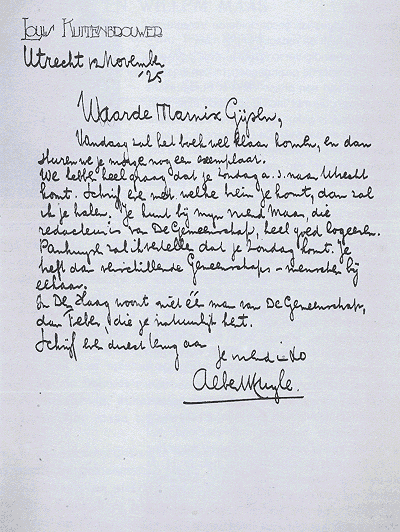 Louis Kuitenbrouwer
Utrecht 12 November
'25
Waarde Marnix Gijsen,
Vandaag zal het boek wel klaar komen, en dan
sturen we je nog een exemplaar.
We hebben heel graag dat je Zondag a.s. naar Utrecht
komt. Schrijf even met welke trein je komt, dan zal
ik je halen. Je kunt bij mijn vriend Maas, die
redacteur is van De Gemeenschap, heel goed logeeren.
zal ik vertellen dat je Zondag komt. Je
heft dan verschillende Gemeenschaps-menschen bij
elkaar.
In Den Haag woont niet één man van De Gemeenschap,
dan Feber, die je natuurlijk kent.
Schrijf even direct terug aan
je vriend in XO
Albert Kuyle.